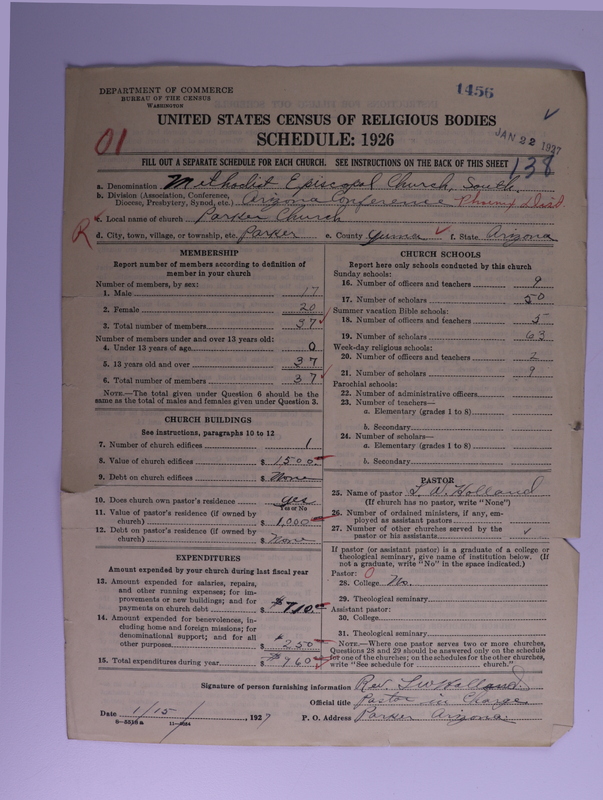 DEPARTMENT OF COMMERCE
BUREAU OF THE CENSUS
WASHINGTON
1456
UNITED STATES CENSUS OF RELIGIOUS BODIES
JAN 22 1927
SCHEDULE: 1926
01
138
FILL OUT A SEPARATE SCHEDULE FOR EACH CHURCH. SEE INSTRUCTIONS ON THE BACK OF THIS SHEET
a. Denomination Methodist Episcopal Church, South.
b. Division (Association, Conference, Diocese, Presbytery, Synod, etc.) Arizona Conference Phoenix Dist
c. Local name of church Parker Church
R
d. City, town, village, or township, etc. Parker e. County Yuma f. State Arizona
MEMBERSHIP
Report number of members according to definition of
member in your church
Number of members, by sex:
1. Male 17
2. Female 20
3. Total number of members 37
Number of members under and over 13 years old:
4. Under 13 years of age 0
5. 13 years old and over 37
6. Total number of members 37
NOTE.—The total given under Question 6 should be the
same as the total of males and females given under Question 3.
CHURCH BUILDINGS
See instructions, paragraphs 10 to 12
7. Number of church edifices 1
8. Value of church edifices $ 1500
9. Debt on church edifices $ None
10. Does church own pastor's residence yes
Yes or No
11. Value of pastor's residence (if owned by
church) $ 1,000
12. Debt on pastor's residence (if owned by
church) $ None
EXPENDITURES
Amount expended by your church during last fiscal year
13. Amount expended for salaries, repairs,
and other running expenses; for im-
provements or new buildings; and for
payments on church debt $ 710.
14. Amount expended for benevolences, in-
cluding home and foreign missions; for
denominational support; and for all
other purposes $ 250
15. Total expenditures during year $ 960
CHURCH SCHOOLS
Report here only schools conducted by this church
Sunday schools:
16. Number of officers and teachers 9
17. Number of scholars 50
Summer vacation Bible schools:
18. Number of officers and teachers 5
19. Number of scholars 63
Week-day religious schools:
20. Number of officers and teachers 2
21. Number of scholars 9
Parochial schools:
22. Number of administrative officers
23. Number of teachers—
a. Elementary (grades 1 to 8)
b. Secondary
24. Number of scholars—
a. Elementary (grades 1 to 8)
b. Secondary
PASTOR
25. Name of pastor L. W. Holland
(If church has no pastor, write "None")
26. Number of ordained ministers, if any, em-
ployed as assistant pastors
27. Number of other churches served by the
pastor or his assistants
If pastor (or assistant pastor) is a graduate of a college or
theological seminary, give name of institution below. (If
not a graduate, write "No" in the space indicated.)
Pastor: 0
28. College No.
29. Theological seminary
Assistant pastor:
30. College
31. Theological seminary
NOTE.—Where one pastor serves two or more churches,
Questions 28 and 29 should be answered only on the schedule
for one of the churches; on the schedules for the other churches,
write "See schedule for church."
Signature of person furnishing information Rev. L W Holland
Official title Pastor in Charge
Date 1/15/, 1927 P. O. Address Parker Arizona.